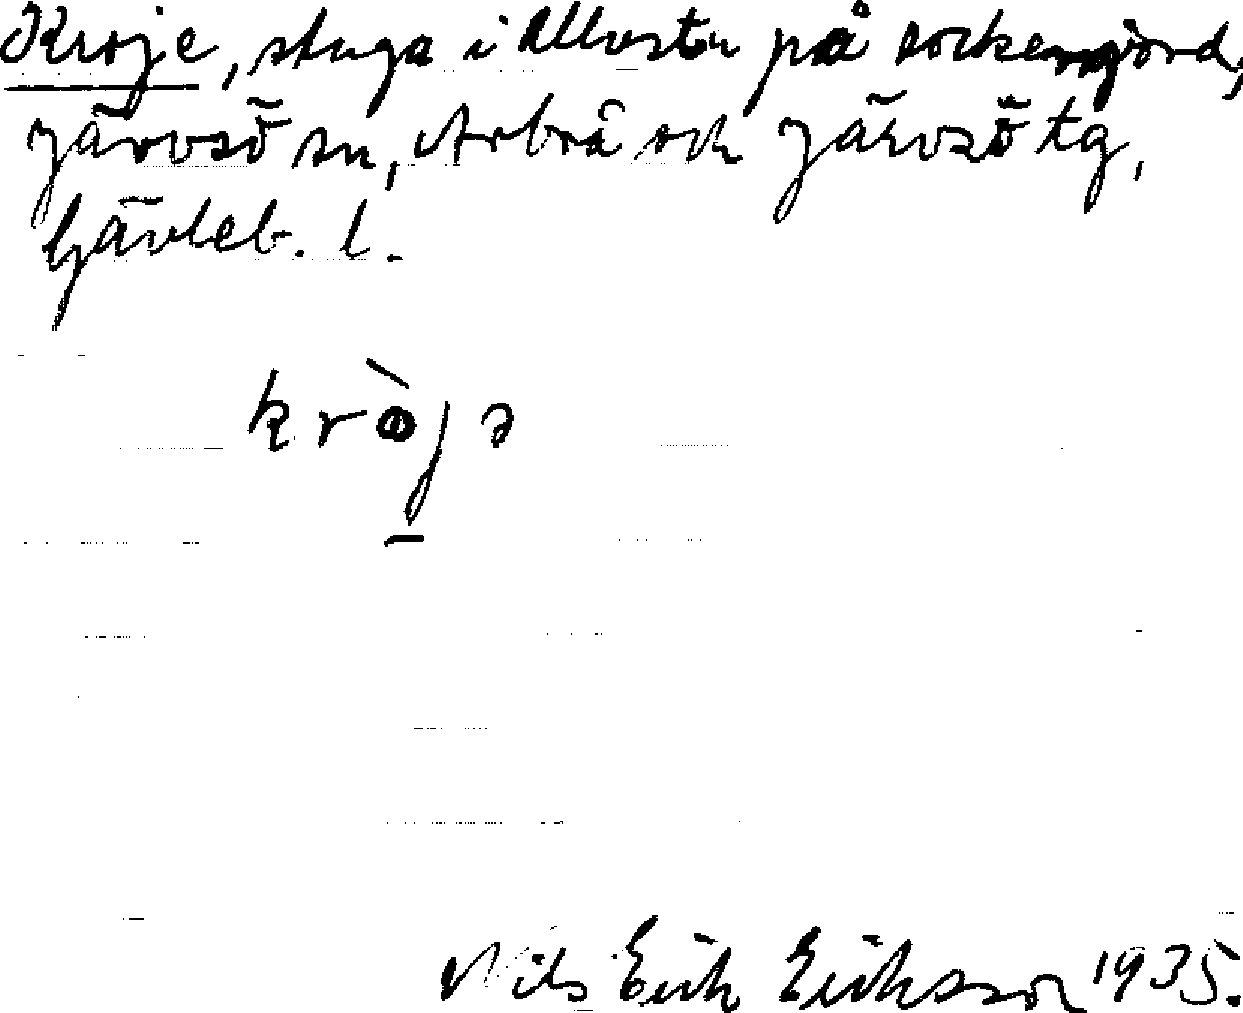 Kroje, stuga i Allvastu på sockenjord,
Järvsö sn, Arbrå och Järvsö tg,
Gävleb. l.
kròjə
Nils Erik Eriksson 1935.